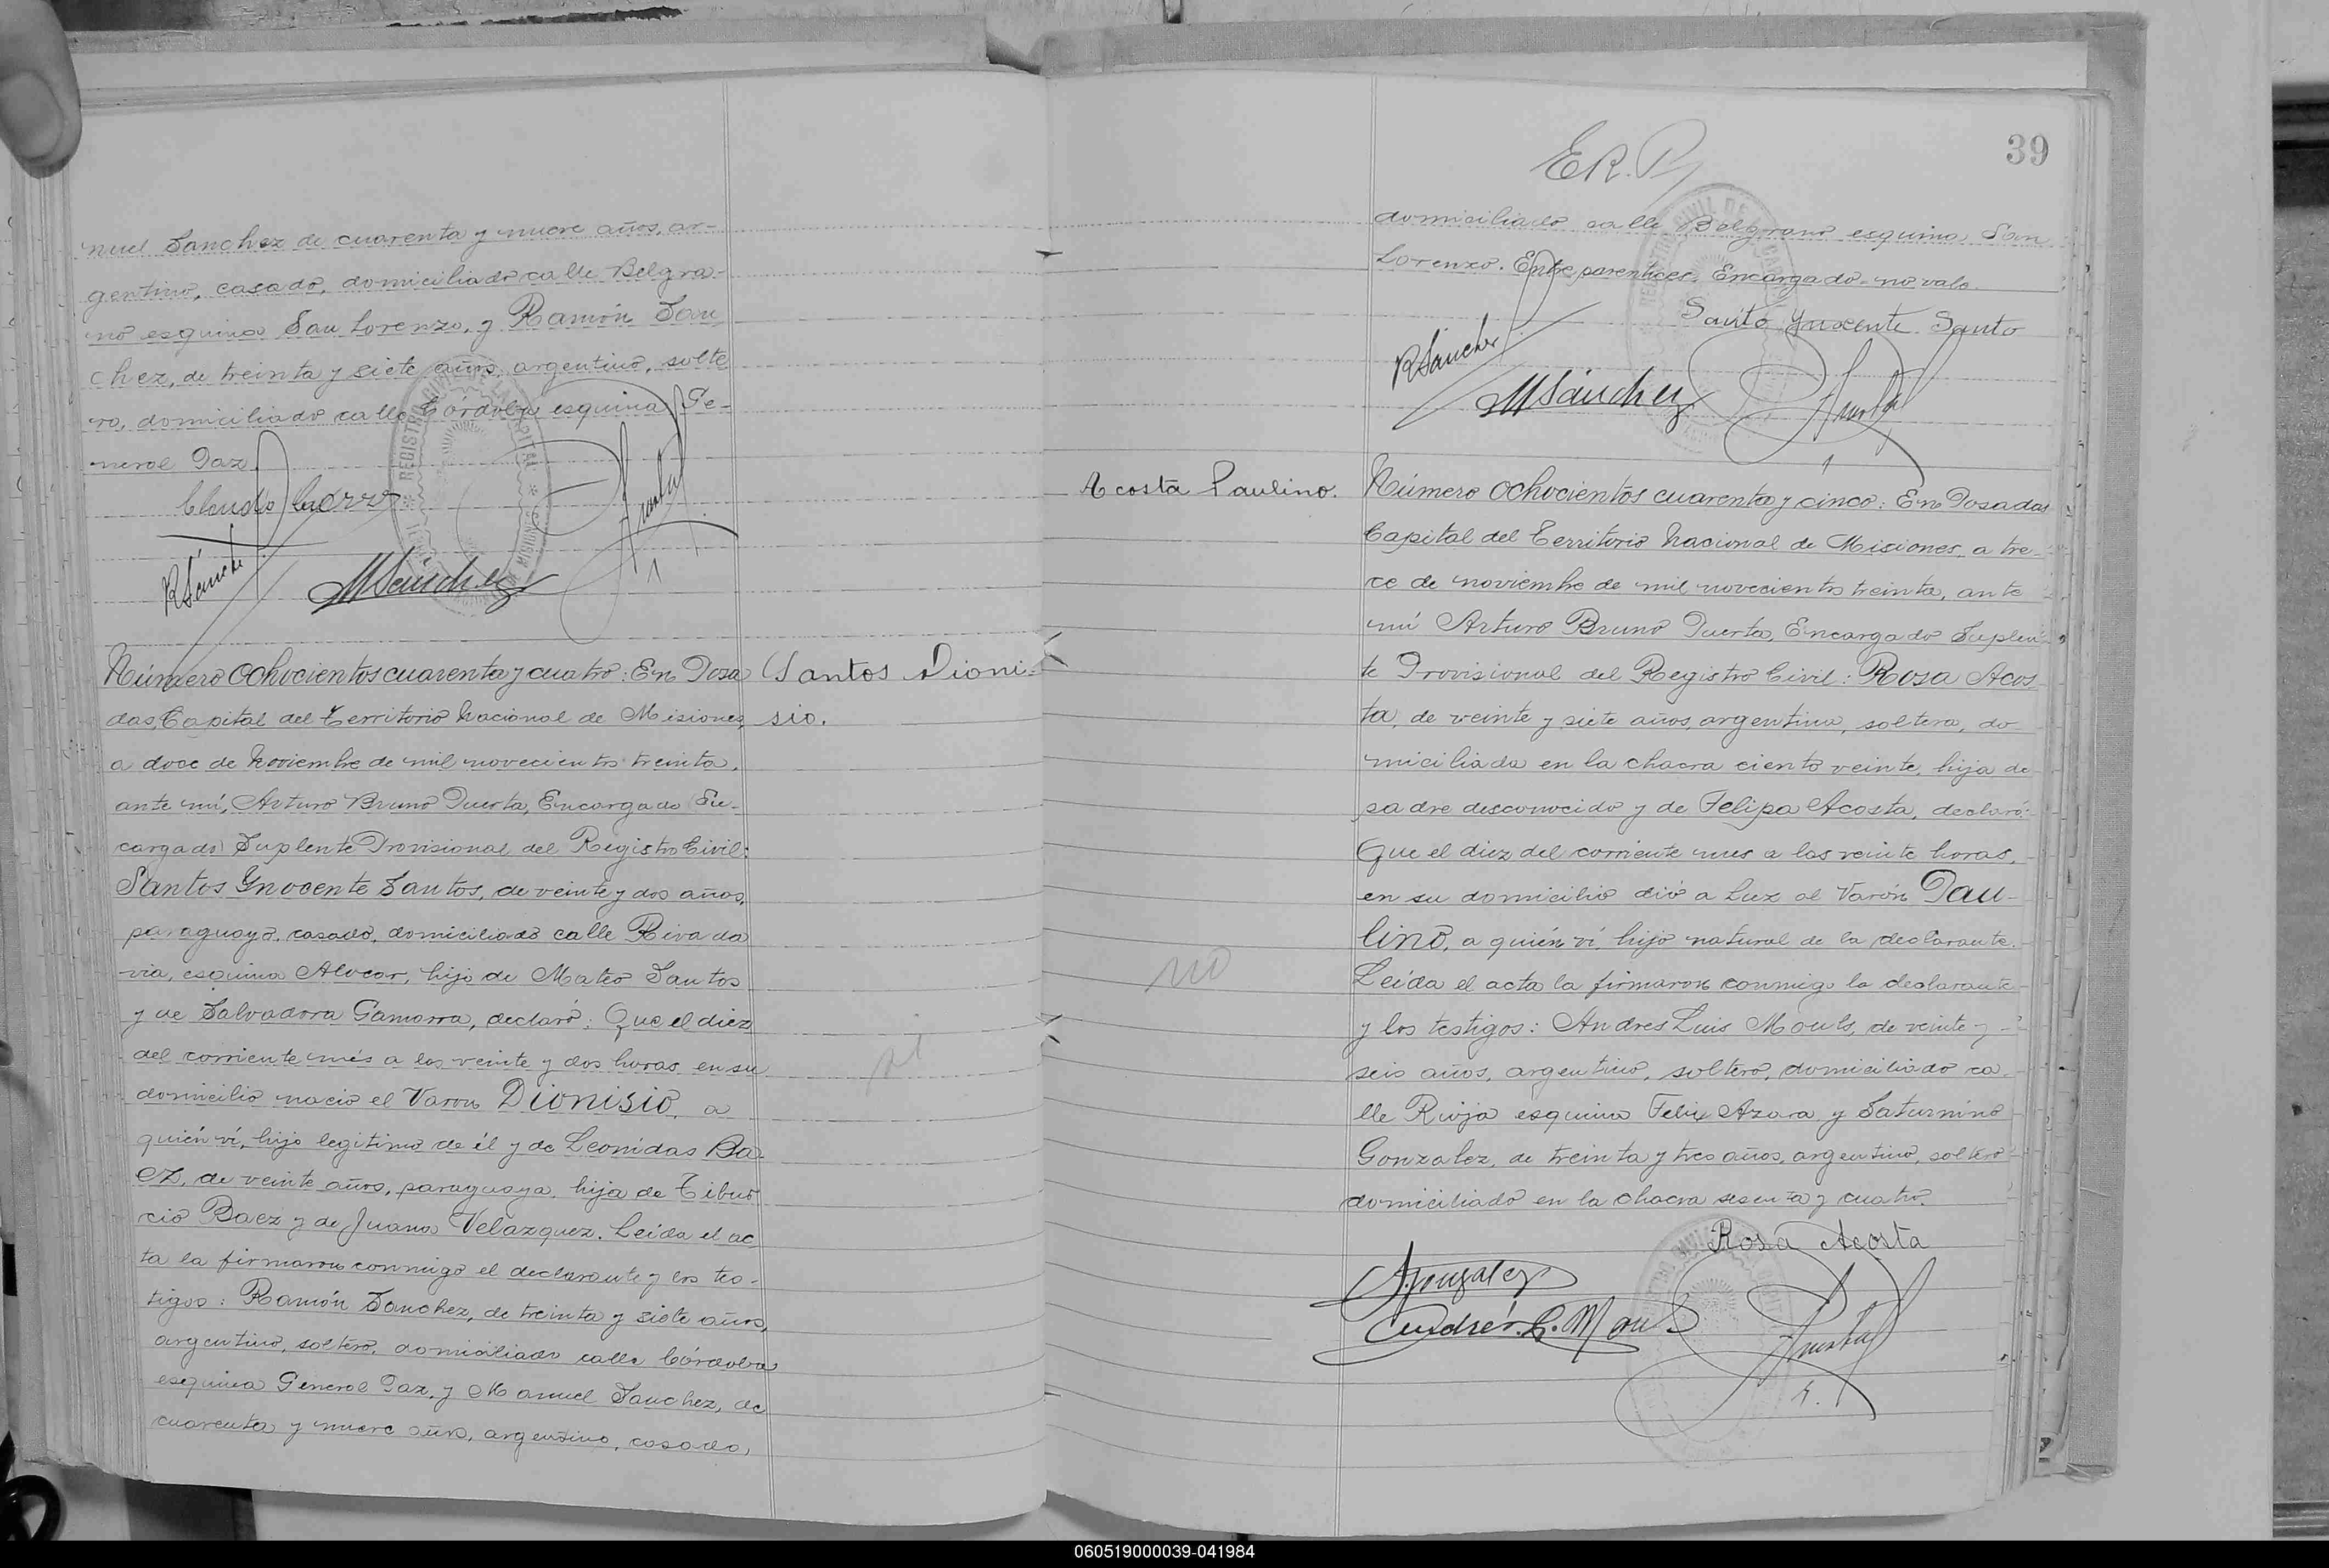 nuel Sanchez de cuarenta y nueve años, ar-
gentino, casado, domiciliado calle Belgra-
no esquina San Lorenzo, y Ramón San
chez, de treinta y siete años, argentino, solte
ro, domiciliado calle Córdoba esquina Ge-
neral Paz.
R Sanchez
M Sánchez
Número Ochocientos cuarenta y cuatro: En Posa
das, Capital del Territorio Nacional de Misiones,
a doce de Noviembre de mil novecientos treinta,
ante mí, Arturo Bruno Puerta, Encargado (En-
cargado) Suplente Provisional del Registro Civil:
Santos Ynocente Santos, de veinte y dos años,
paraguayo, casado, domiciliado calle Rivada
via, esquina Alvear, hijo de Mateo Santos
y de Salvadora Gamarra, declaró: Que el diez
del corriente més a las veinte y dos horas en su
domicilio nació el Varon Dionisio, a
quién ví, hijo legitimo de él y de Leonidas Ba
ez, de veinte años, paraguaya, hija de Tibur
cio Baez y de Juana Velazquez. Leida el ac
ta la firmaron conmigo el declarante y los tes-
tigos: Ramón Sanchez, de treinta y siete años,
argentino, soltero, domiciliado calle Córdoba
esquina General Paz, y Manuel Sanchez, de
cuarenta y nueve años, argentino, casado,
Santos Dioni-
sio.
39
E.R.P.
domiciliado calle Belgrano esquina San
Lorenzo. Entre parentices. Encargado. no vale.
Santo Ynocente Santo
R Sanchez
M Sánchez
Acosta Paulino.
Número Ochocientos cuarenta y cinco: En Posadas
Capital del Territorio Nacional de Misiones, a tre-
ce de noviembre de mil novecientos treinta, ante
mí Arturo Bruno Puerta, Encargado Suplen-
te Provisional del Registro Civil: Rosa Acos
ta, de veinte y siete años, argentina, soltera, do
miciliada en la chacra ciento veinte, hija de
padre desconocido y de Felipa Acosta, declaró:
Que el diez del corriente mes a las veinte horas,
en su domicilio dió a Luz al Varón Pau-
lino, a quién ví, hijo natural de la declarante.
Leida el acta la firmaron conmigo la declarante
y los testigos: Andres Luis Mouls, de veinte y
seis años, argentino, soltero, domiciliado ca
lle Rioja esquina Felix Azara, y Saturnino
Gonzalez, de treinta y tres años, argentino, soltero
domiciliado en la chacra sesenta y cuatro.
no
Rosa Acosta
S. Gonzalez
Andrés L. Mouls
060519000039-041984